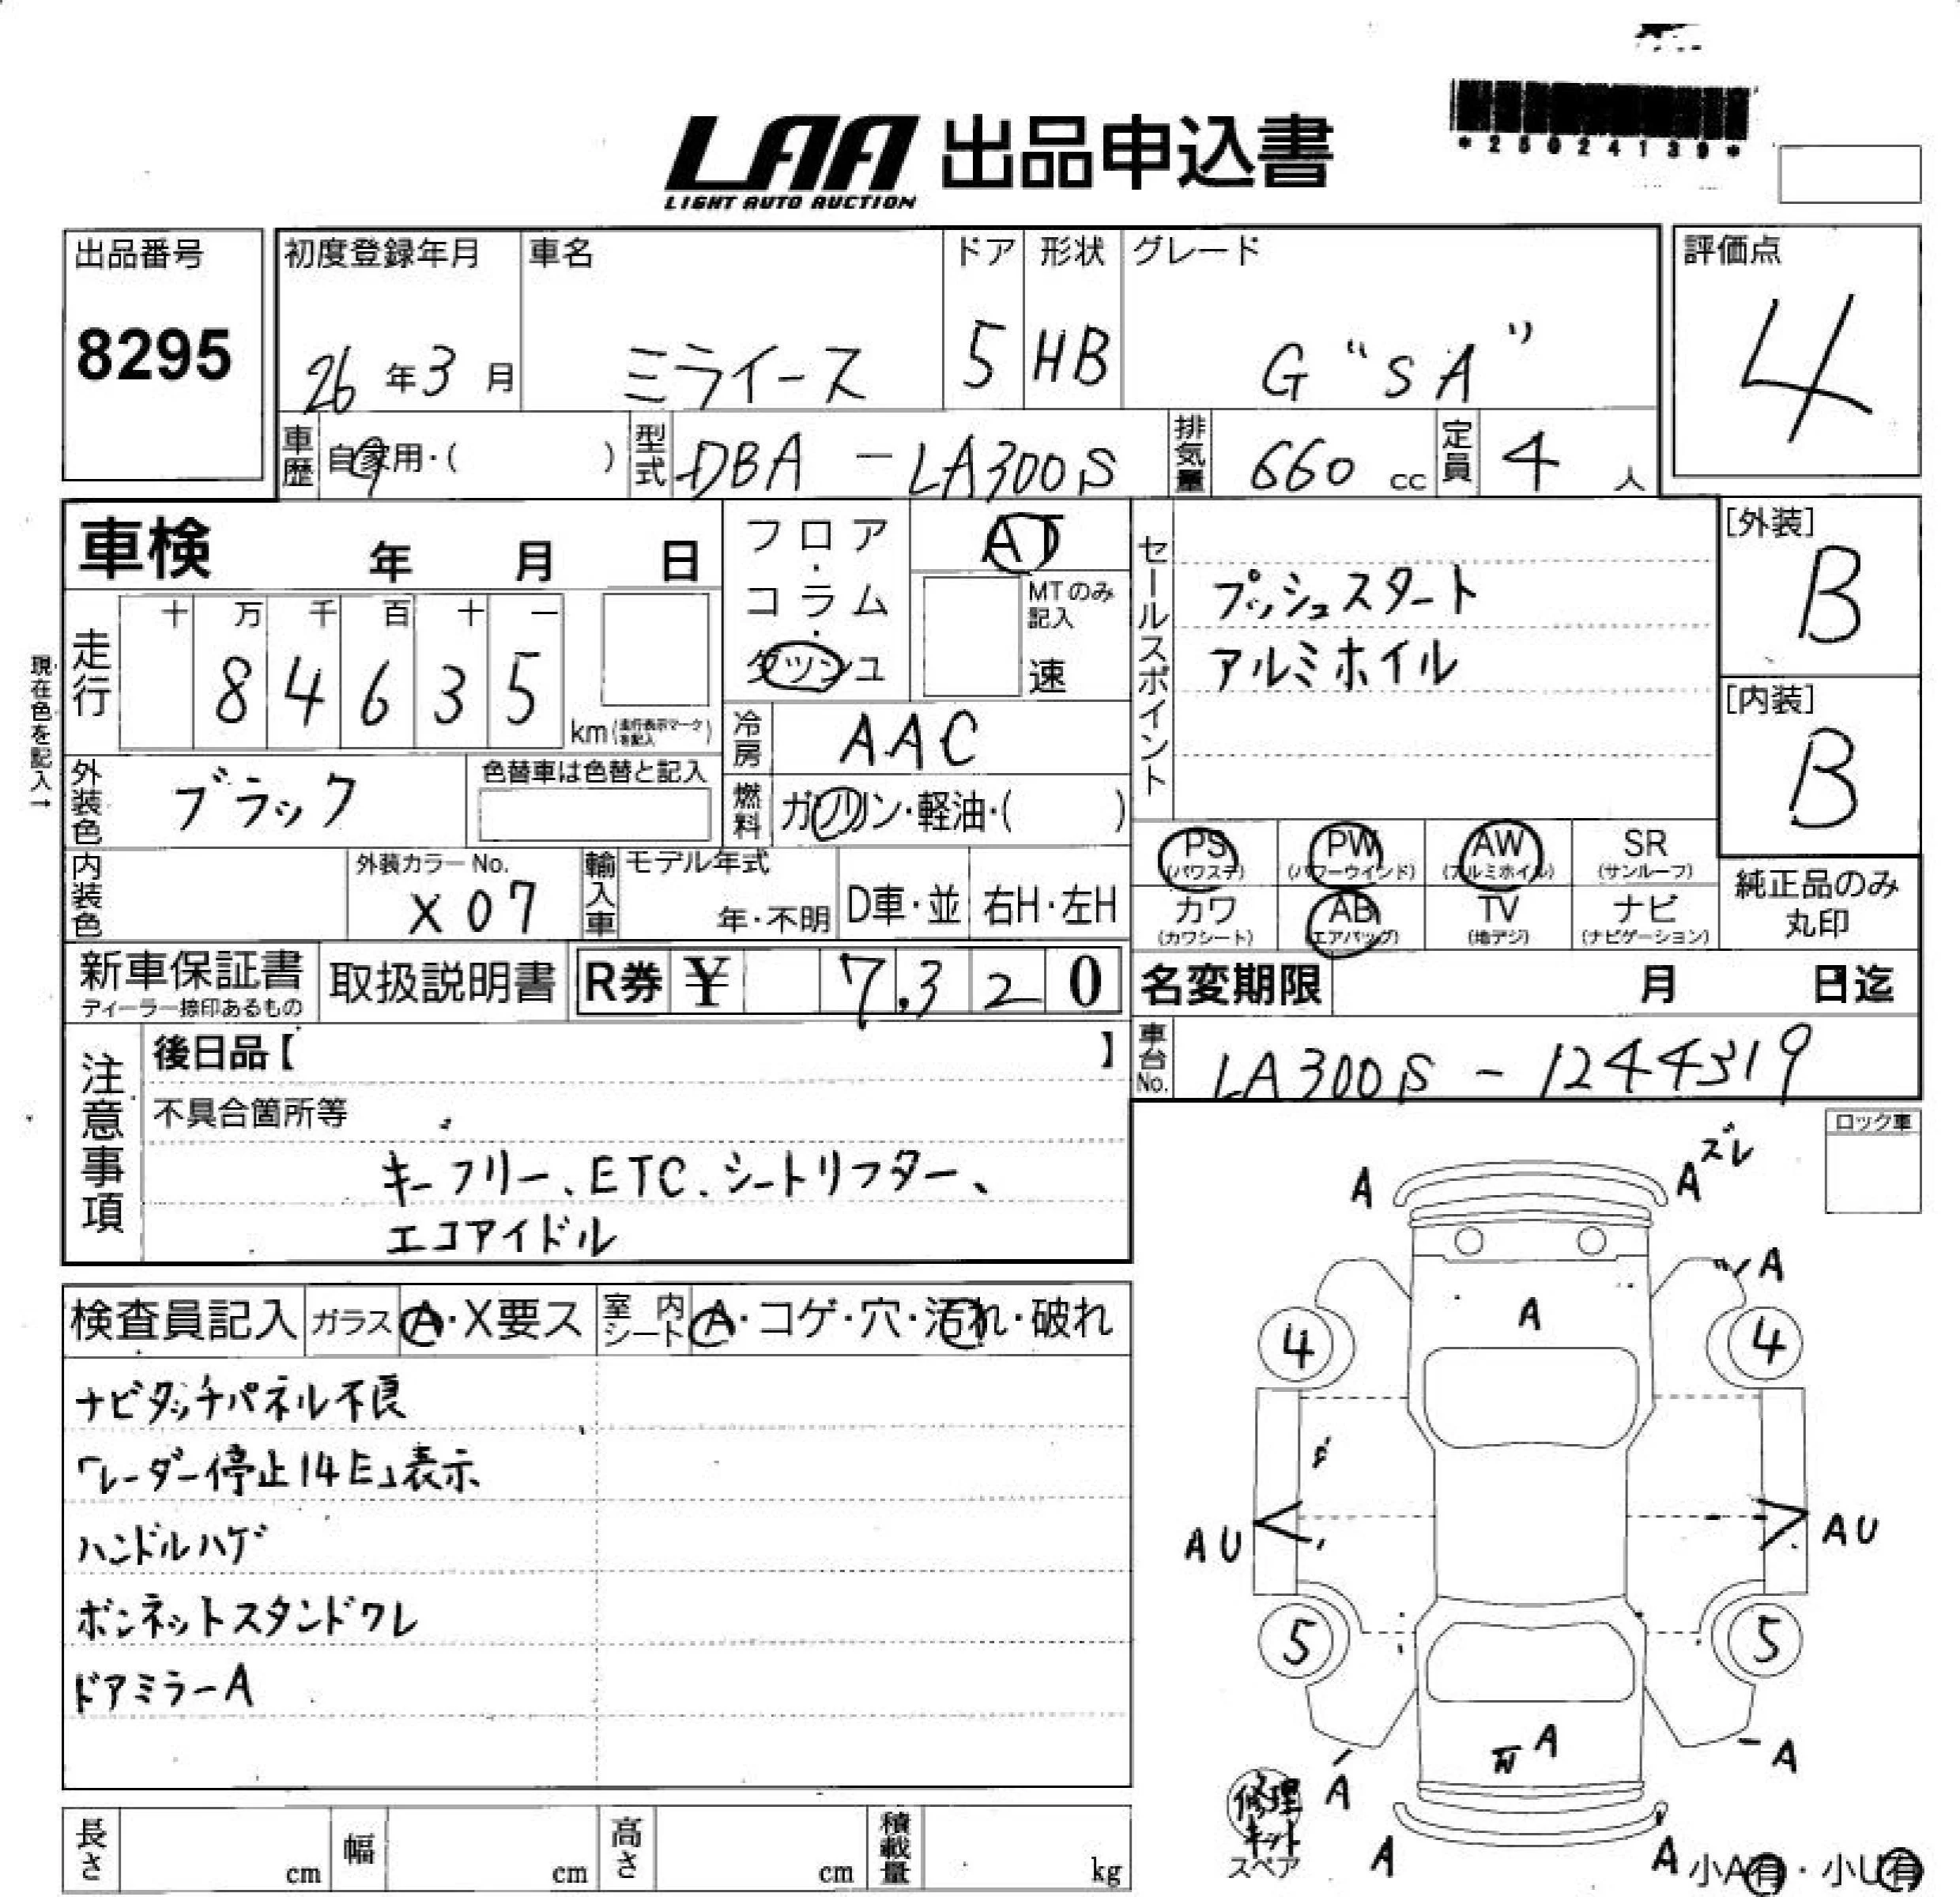 LAA 出品申込書
LIGHT AUTO AUCTION
*25024139*
出品番号
8295
初度登録年月
26年3月
車名
ミライース
ドア
5
形状
HB
グレード
G "SA"
評価点
4
車歴
自家用・( )
型式
DBA-LA300S
排気量
660 cc
定員
4 人
車検 年 月 日
フロア・コラム・ダッシュ
AT
MTのみ記入
速
セールスポイント
プッシュスタート
アルミホイル
[外装]
B
[内装]
B
現在色を記入→
走行
十 万 千 百 十 一
8 4 6 3 5
km(走行表示マークを記入)
冷房
AAC
外装色
ブラック
色替車は色替と記入
燃料
ガソリン・軽油・( )
PS
(パワステ)
PW
(パワーウインド)
AW
(アルミホイル)
SR
(サンルーフ)
カワ
(カワシート)
AB
(エアバッグ)
TV
(地デジ)
ナビ
(ナビゲーション)
純正品のみ
丸印
内装色
外装カラーNo.
X07
輸入車
モデル年式
年・不明
D車・並
右H・左H
新車保証書
ディーラー捺印あるもの
取扱説明書
R券 ¥ 7,320
名変期限 月 日迄
車台No.
LA300S-1244319
注意事項
後日品【 】
不具合箇所等
キーフリー、ETC、シートリフター、
エコアイドル
ロック車
検査員記入
ガラス
A・X要ス
室内シート
A・コゲ・穴・汚れ・破れ
ナビタッチパネル不良
「レーダー停止14E」表示
ハンドルハゲ
ボンネットスタンドワレ
ドアミラーA
A
Aズレ
A
A
4
4
AU
AU
5
5
A
A
A
A
A
修理
キット
スペア
小A有・小U有
長さ
cm
幅
cm
高さ
cm
積載量
kg